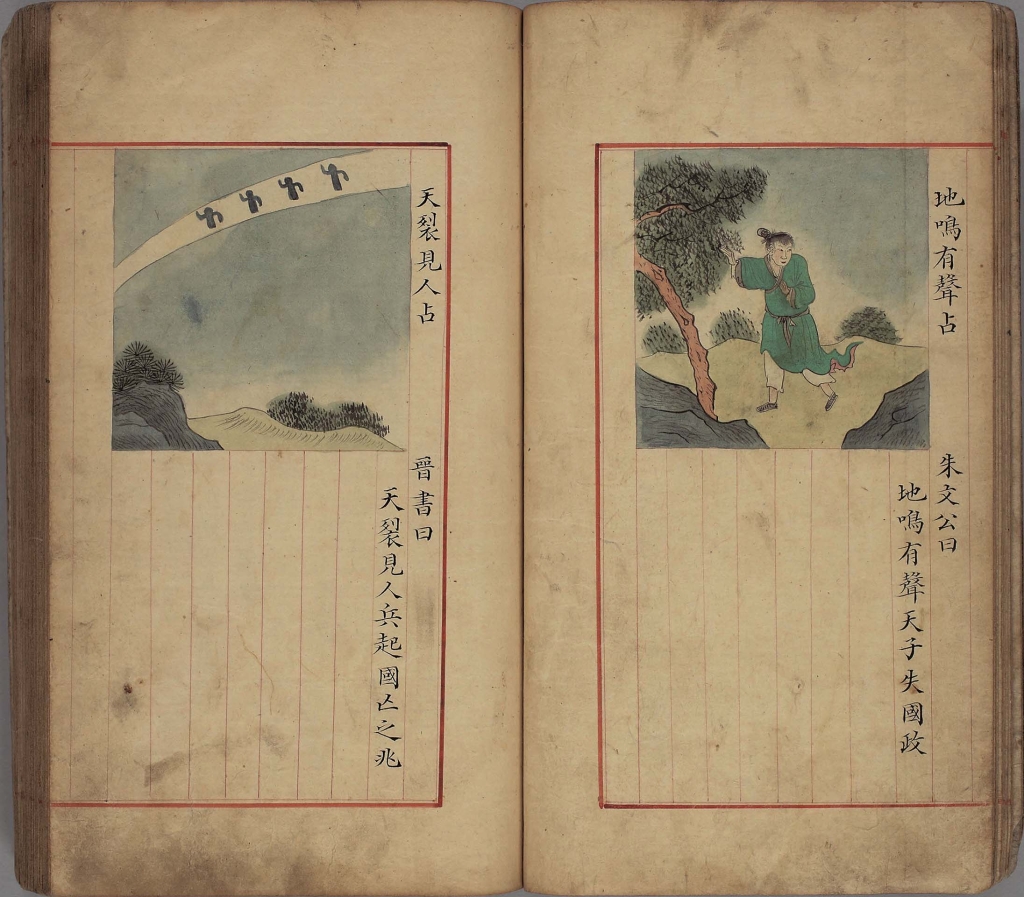 地鳴有聲占
朱文公曰
地鳴有聲天子失國政
天裂見人占
晉書曰
天裂見人兵起國亡之兆